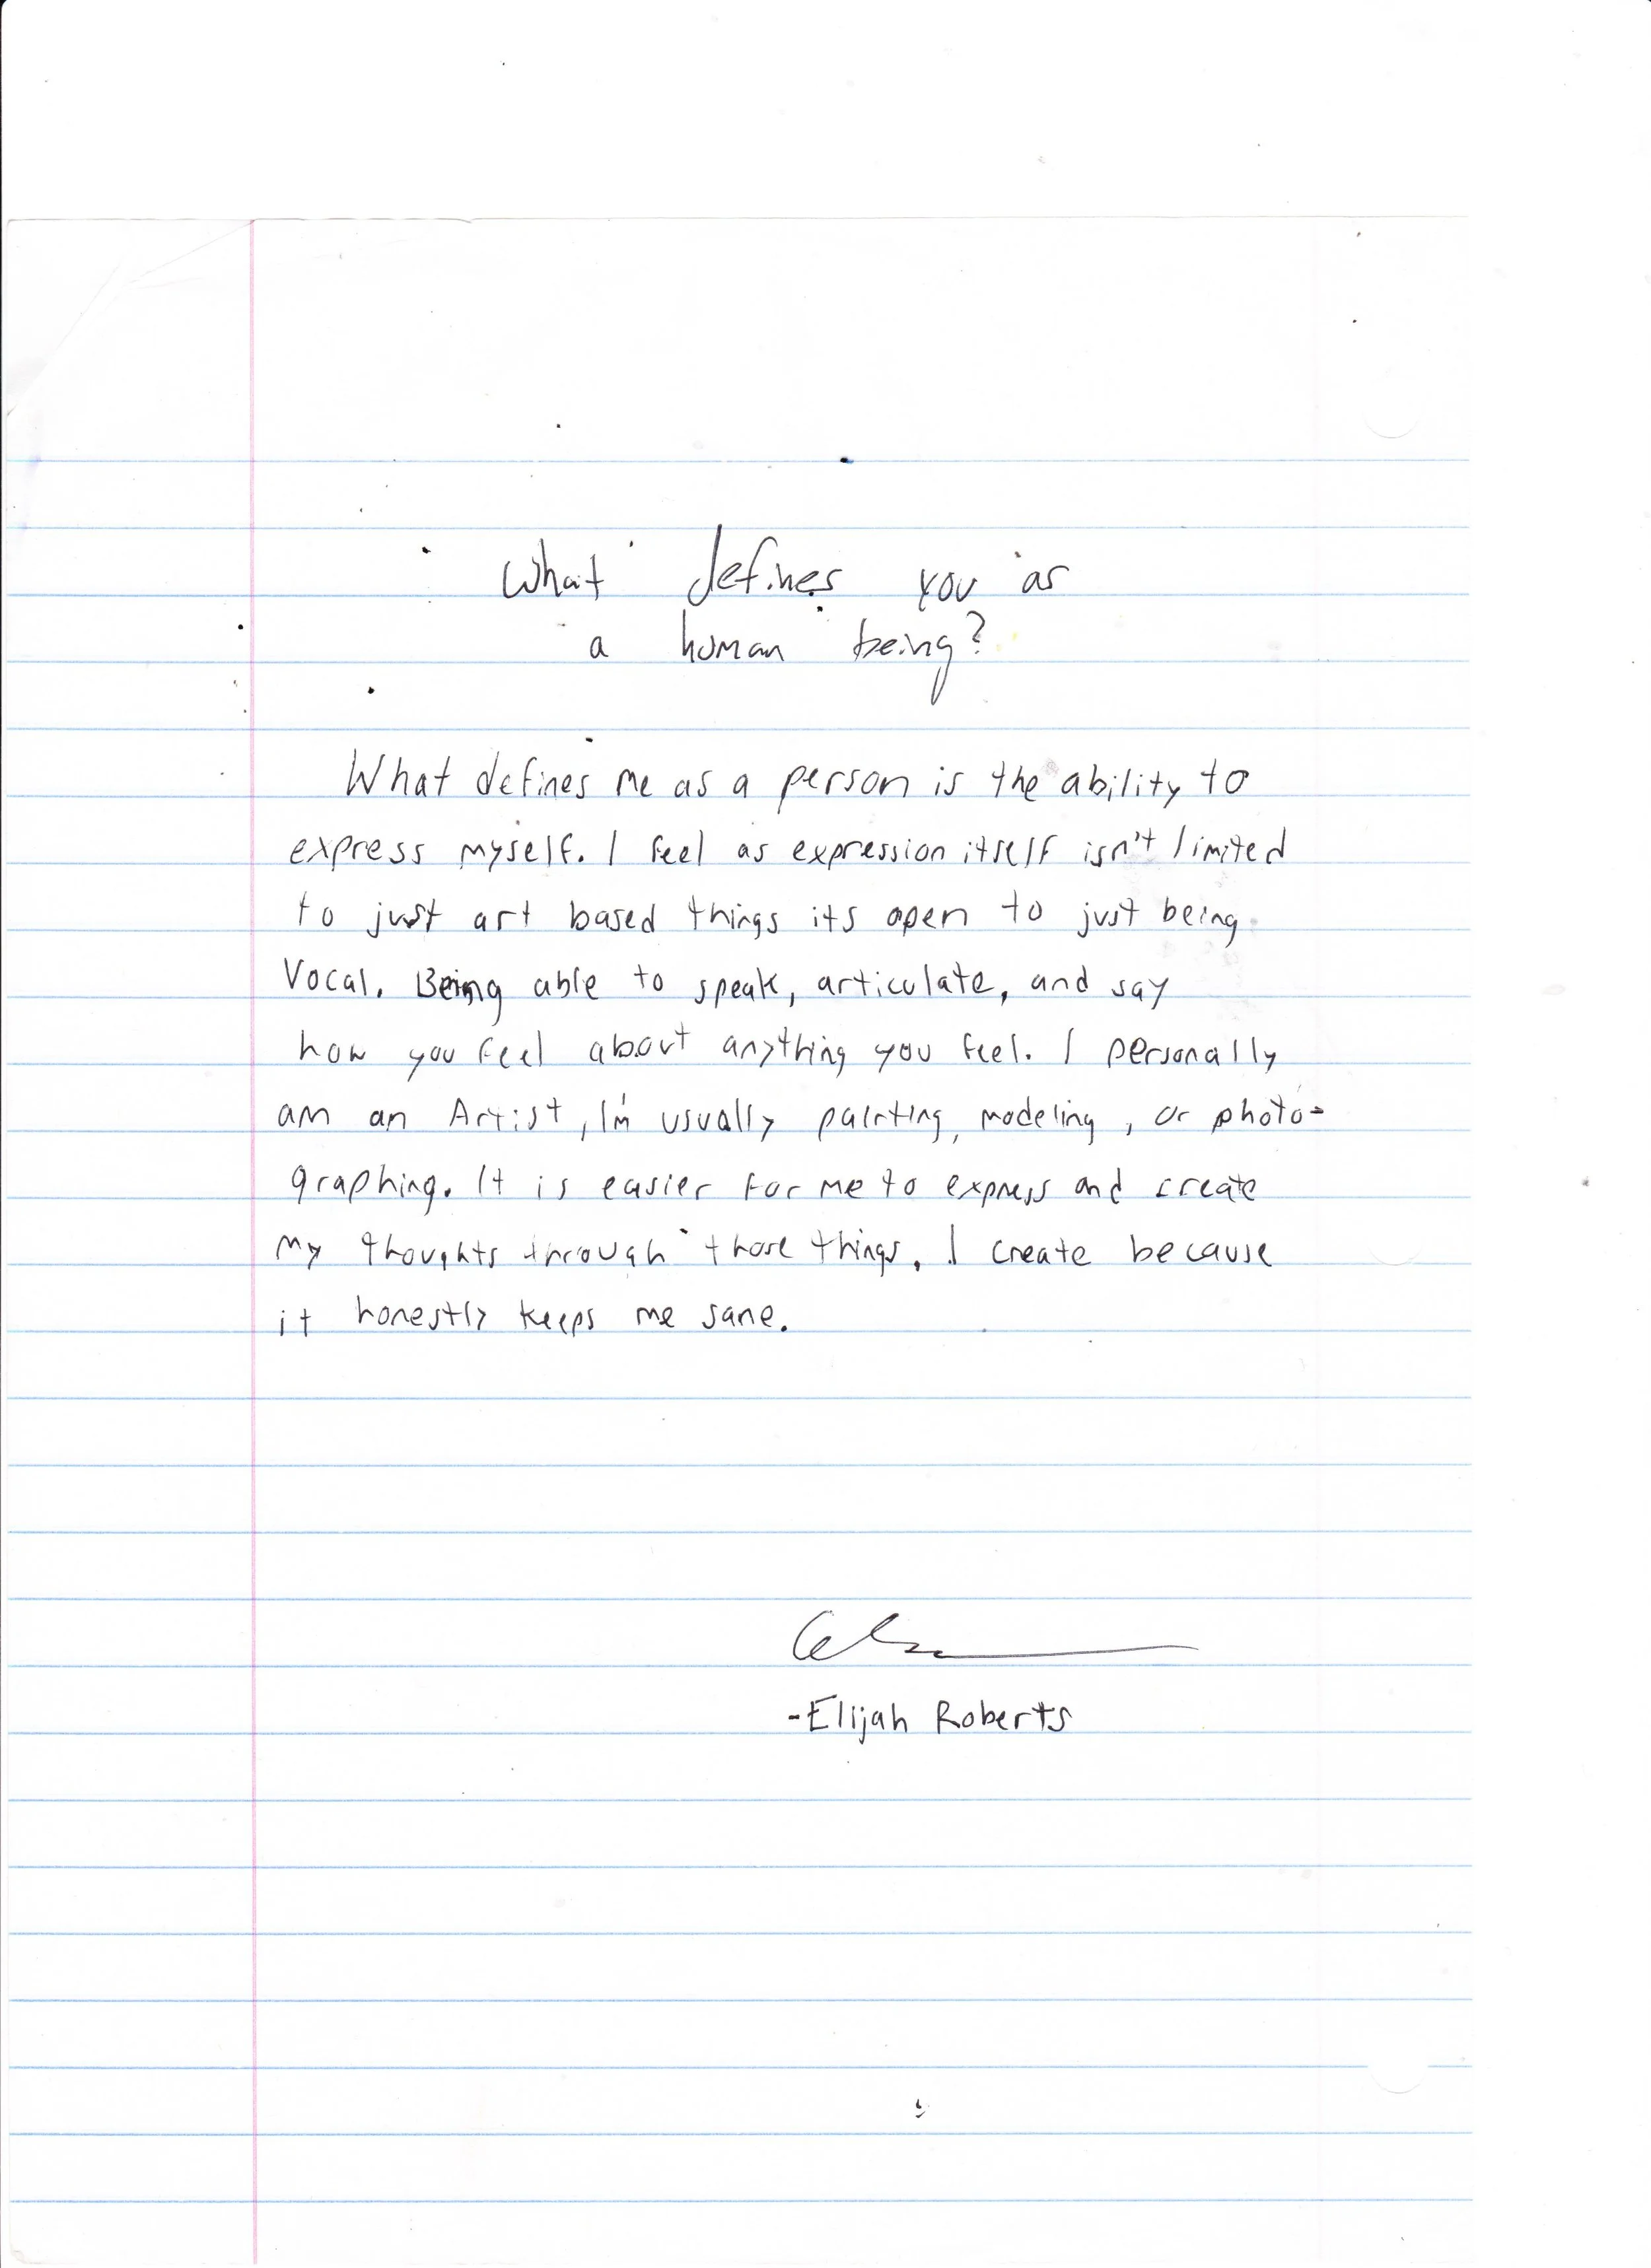 What defines you as
a human being?
What defines me as a person is the ability to
express myself. I feel as expression itself isn't limited
to just art based things its open to just being
vocal. Being able to speak, articulate, and say
how you feel about anything you feel. I personally
am an Artist, I'm usually painting, modeling, or photo-
graphing. It is easier for me to express and create
my thoughts through those things. I create because
it honestly keeps me sane.
-Elijah Roberts